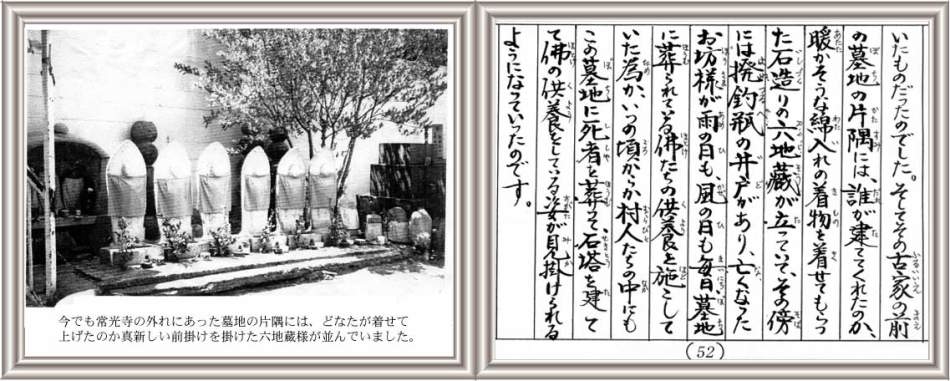 今でも常光寺の外れにあった墓地の片隅には、どなたが着せて
上げたのか真新しい前掛けを掛けた六地蔵様が並んでいました。
いたものだったのでした。そしてその古家の前
の墓地の片隅には、誰が建ててくれたのか、
暖かそうな綿入れの着物を着せてもらっ
た石造りの六地蔵が立っていて、その傍
には撥釣瓶の井戸があり、亡くなった
お坊様が雨の日も、風の日も毎日、墓地
に葬られている佛たちの供養を施こして
いた為か、いつの頃からか村人たちの中にも
この墓地に死者を葬って石塔を建て
て佛の供養をしている姿が見掛けられる
ようになっていったのです。
(52)